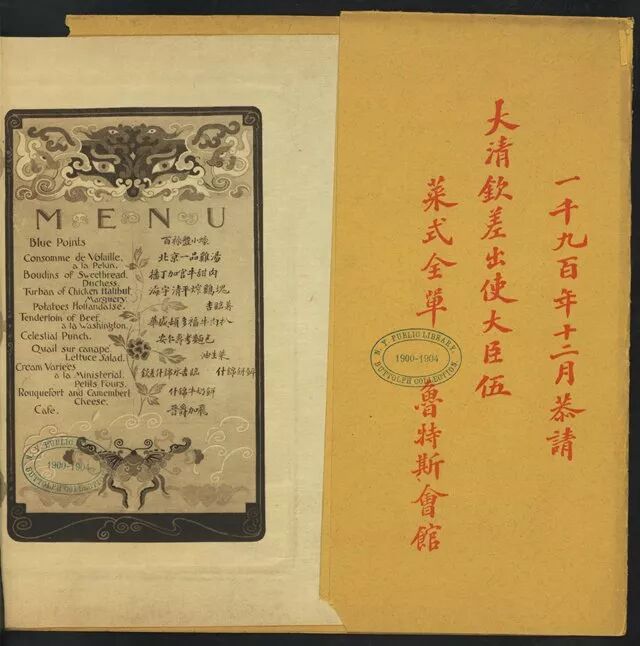 MENU
Blue Points
百祿盤小蠔
Consomme de Volaille,
a la Pekin.
北京一品雞湯
Boudins of Sweetbread
Duchess.
加官牛甜肉
Turban of Chicken Halibut
Marguery.
Potatoes Hollandaise.
Tenderloin of Beef,
a la Washington.
華盛頓多福牛肉扒
Celestial Punch.
Quail sur canape
Lettuce Salad.
油生菜
Cream Varieés
a la Ministerial.
Petits Fours.
什錦餅
Roquefort and Camembert
Cheese.
什錦牛奶餅
Cafe.
晉爵加非
N. Y. PUBLIC
1900-1904
一千九百年十二月恭請
大清欽差出使大臣伍
菜式全單
魯特斯會館
N. Y. PUBLIC LIBRARY,
1900-1904
BUTTOLPH COLLECTION